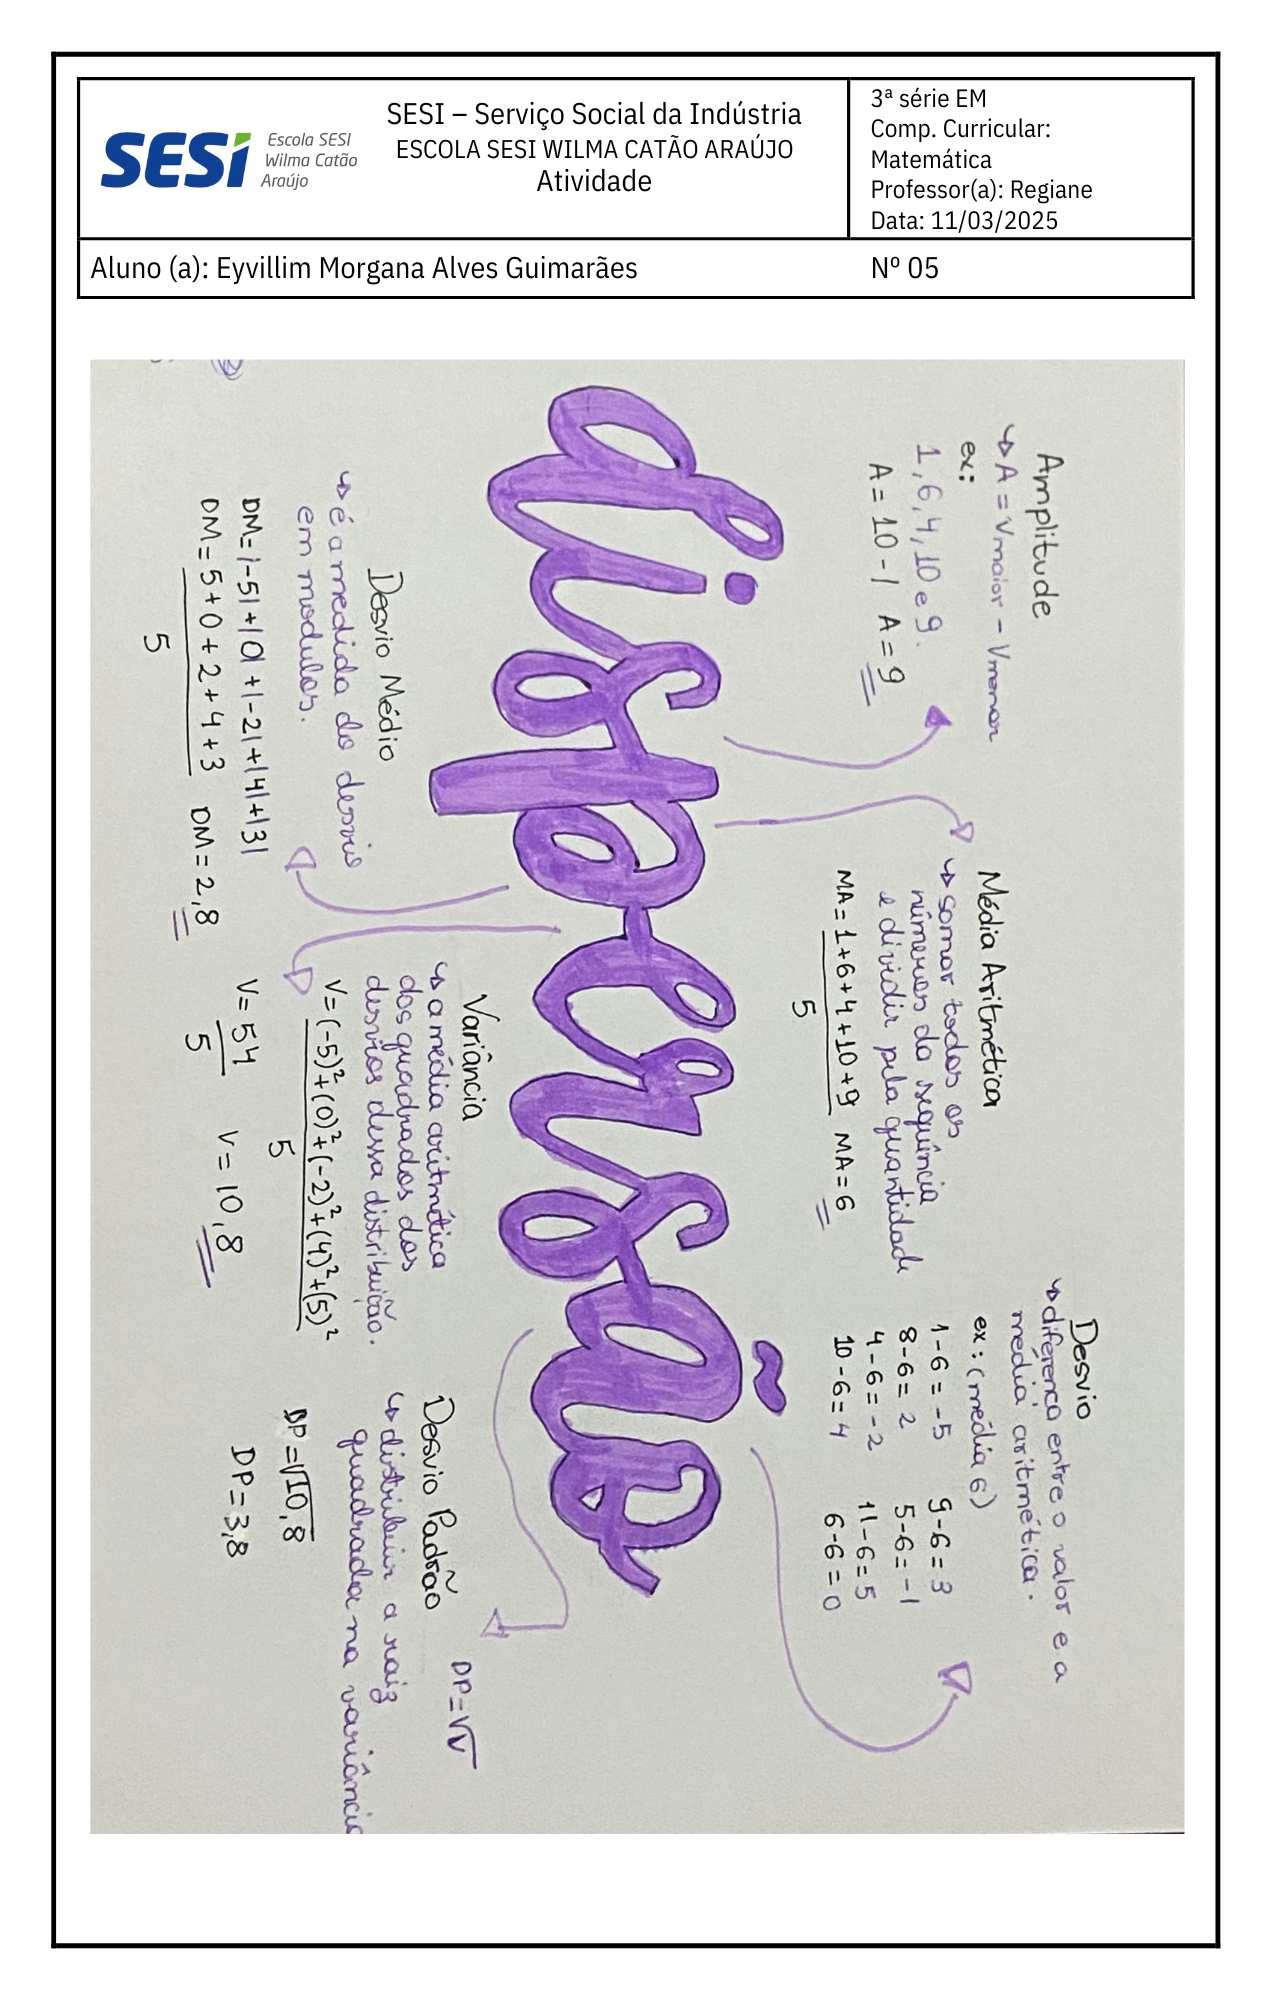 SESI
Escola SESI
Wilma Catão
Araújo
SESI – Serviço Social da Indústria
ESCOLA SESI WILMA CATÃO ARAÚJO
Atividade
3ª série EM
Comp. Curricular:
Matemática
Professor(a): Regiane
Data: 11/03/2025
Aluno (a): Eyvillim Morgana Alves Guimarães
Nº 05
Amplitude
↳ A = Vmaior - Vmenor
ex:
1, 6, 4, 10 e 9.
A = 10 - 1 A = 9
Média Aritmética
↳ somar todos os
números da sequência
e dividir pela quantidade
MA = 1+6+4+10+9 MA = 6
5
Desvio
↳ diferença entre o valor e a
média aritmética.
ex: (média 6)
1-6 = -5 9-6 = 3
8-6 = 2 5-6 = -1
4-6 = -2 11-6 = 5
10-6 = 4 6-6 = 0
dispersão
Desvio Médio
↳ é a medida do desvio
em modulos.
DM = |-5|+|0|+|-2|+|4|+|3|
DM = 5+0+2+4+3 DM = 2,8
5
Variância
↳ a média aritmética
dos quadrados dos
desvios dessa distribuição.
V = (-5)²+(0)²+(-2)²+(4)²+(5)²
5
V = 54 V = 10,8
5
Desvio Padrão DP = √V
↳ distribuir a raiz
quadrada na variância
DP = √10,8
DP = 3,8